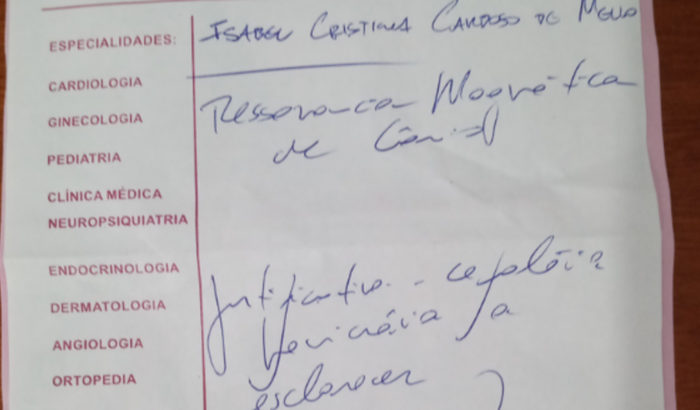 ESPECIALIDADES:
CARDIOLOGIA
GINECOLOGIA
PEDIATRIA
CLÍNICA MÉDICA
NEUROPSIQUIATRIA
ENDOCRINOLOGIA
DERMATOLOGIA
ANGIOLOGIA
ORTOPEDIA
ISABEL CRISTINA CARDOSO DE
Ressonancia Magnética
de
Justificativa - cefaléia
a
esclarecer